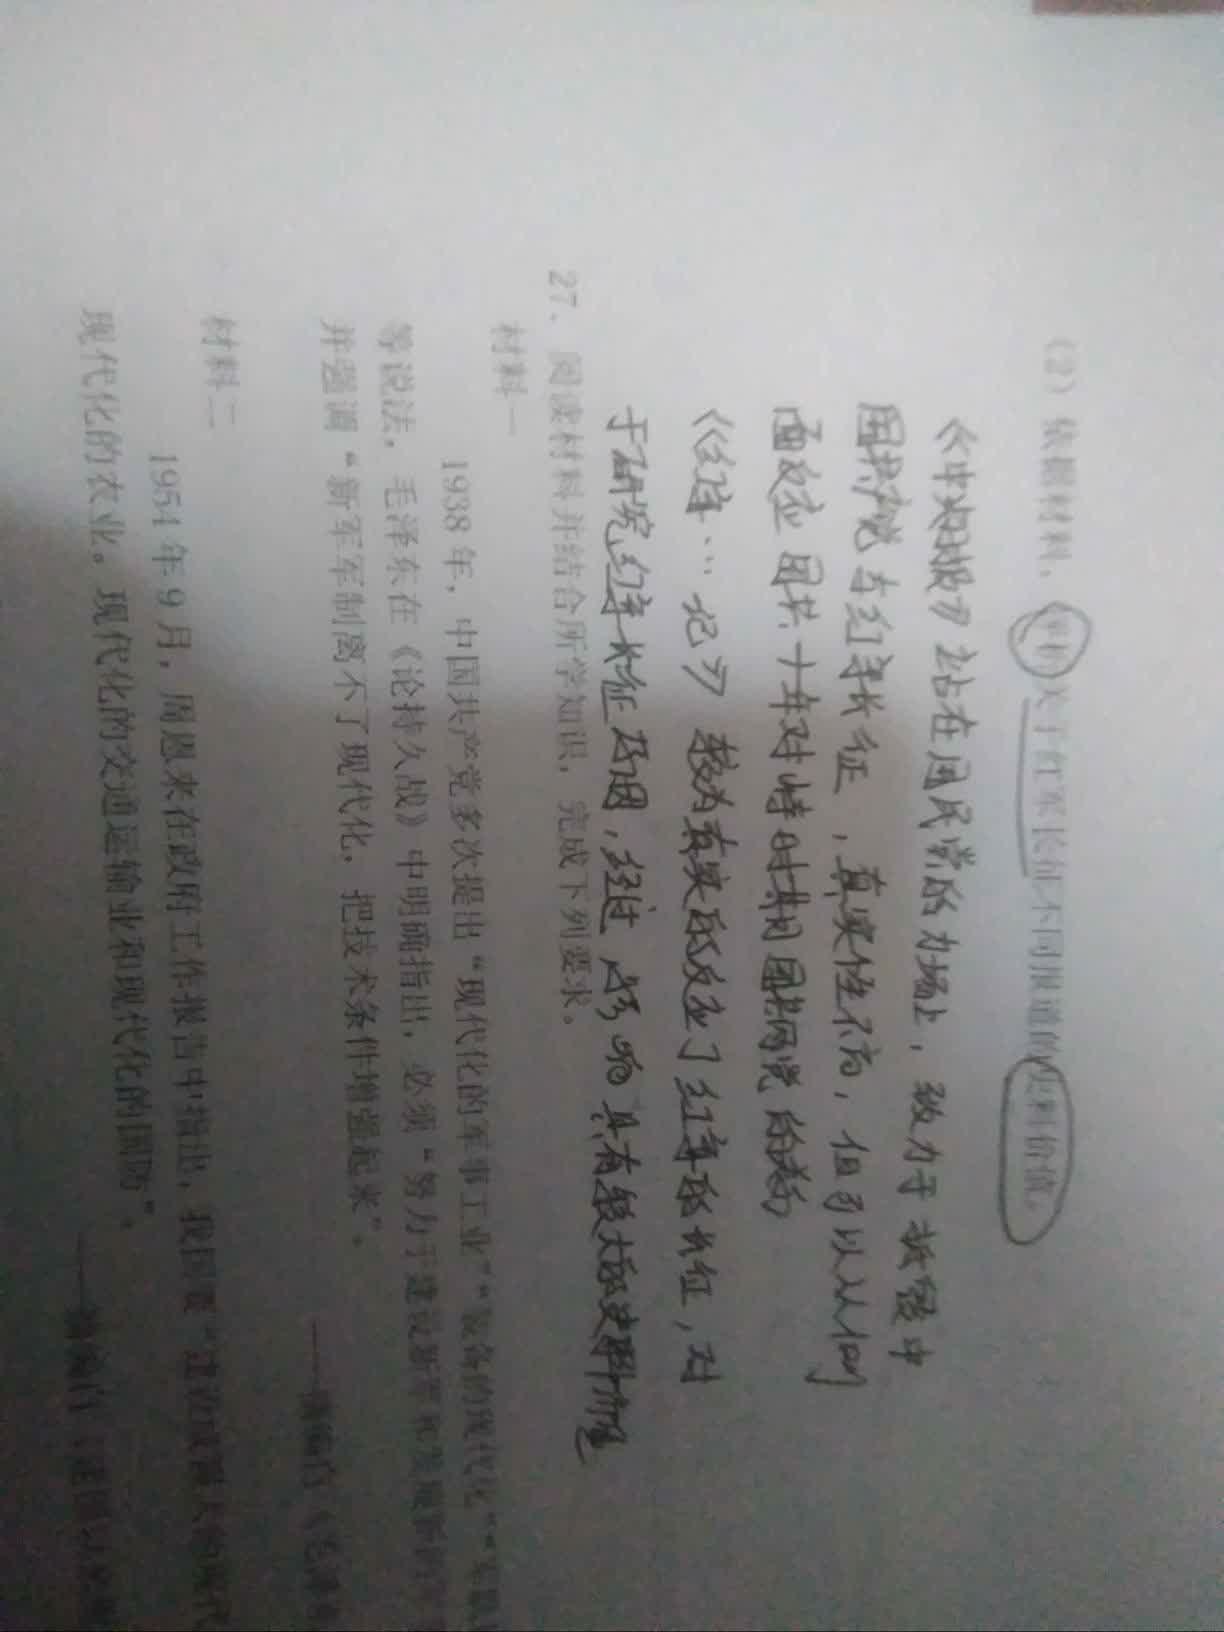 (2) 依据材料，评析关于红军长征不同报道的史料价值。
《中央日报》站在国民党的力场上，致力于抵毁中
国共产党与红军长征，真实性不高，但可以从侧
面反应国共十年对峙时期国共两党的
《红军…记》较为真实的反应了红军的长征，对
于研究红军长征原因，经过，影响具有较大的史料价值
27. 阅读材料并结合所学知识，完成下列要求。
材料一
1938 年，中国共产党多次提出“现代化的军事工业”“装备的现代化”
等说法。毛泽东在《论持久战》中明确指出，必须“努力于建设新军和发展新的
并强调“新军军制离不了现代化，把技术条件增强起来”。
——摘编自《毛泽
材料二
1954 年 9 月，周恩来在政府工作报告中指出，我国要“建设起强大的现代
现代化的农业。现代化的交通运输业和现代化的国防”。
——摘编自《建国以来